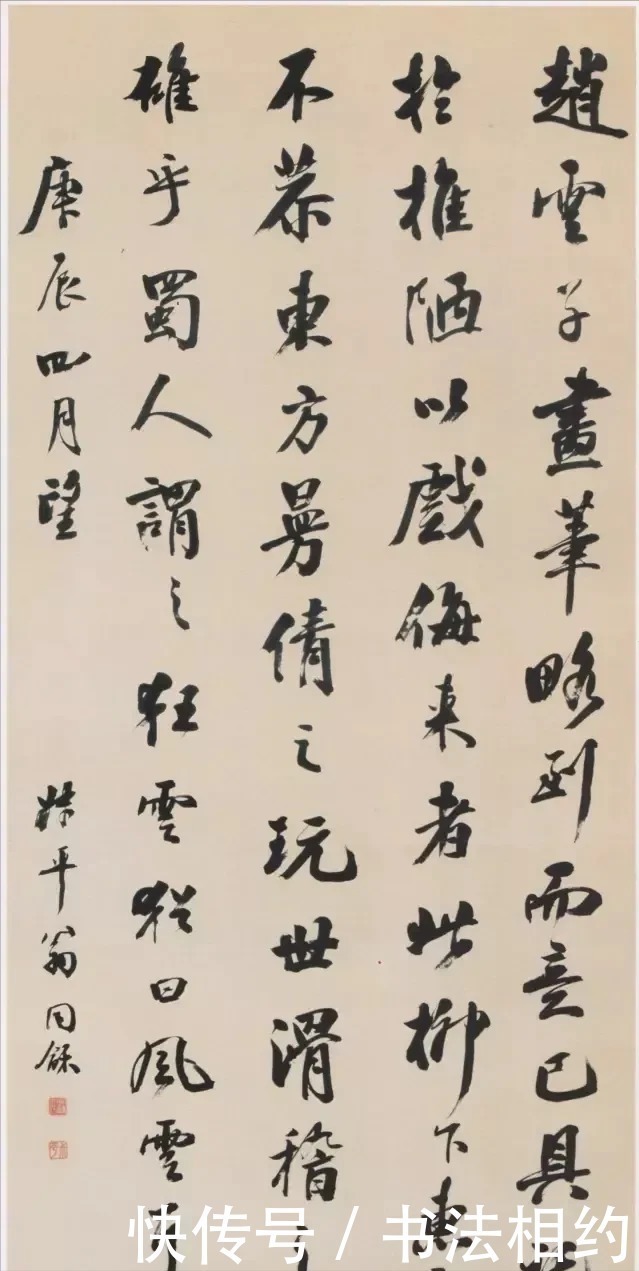 趙雲子畫筆略到而意已具
於推陋以戲侮来者此柳下惠
不恭東方曼倩之玩世滑稽之
雄乎蜀人謂之狂雲猶曰風雲耳
庚辰四月望
姝平翁同龢
快传号 / 书法相约